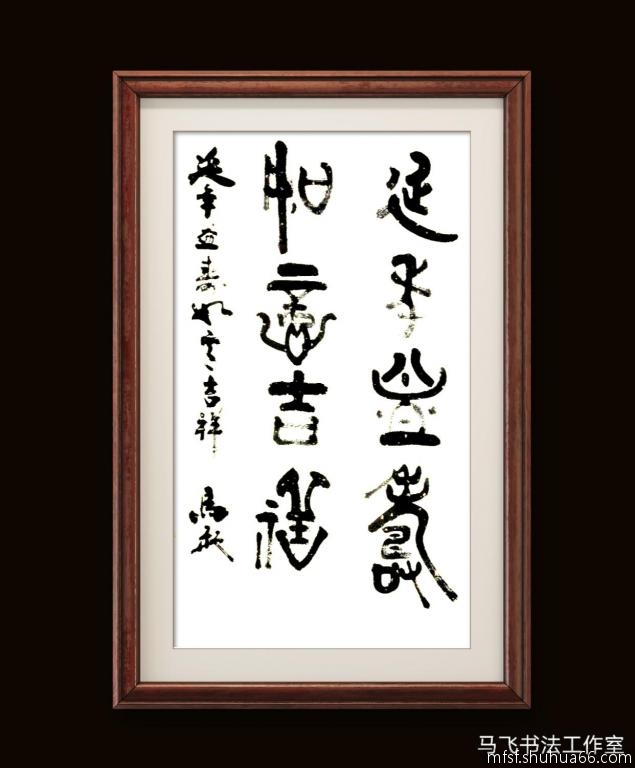 延年益壽
如意吉祥
延年益寿如意吉祥 馬飛
马飞书法工作室
mfsf.shuhua66.com